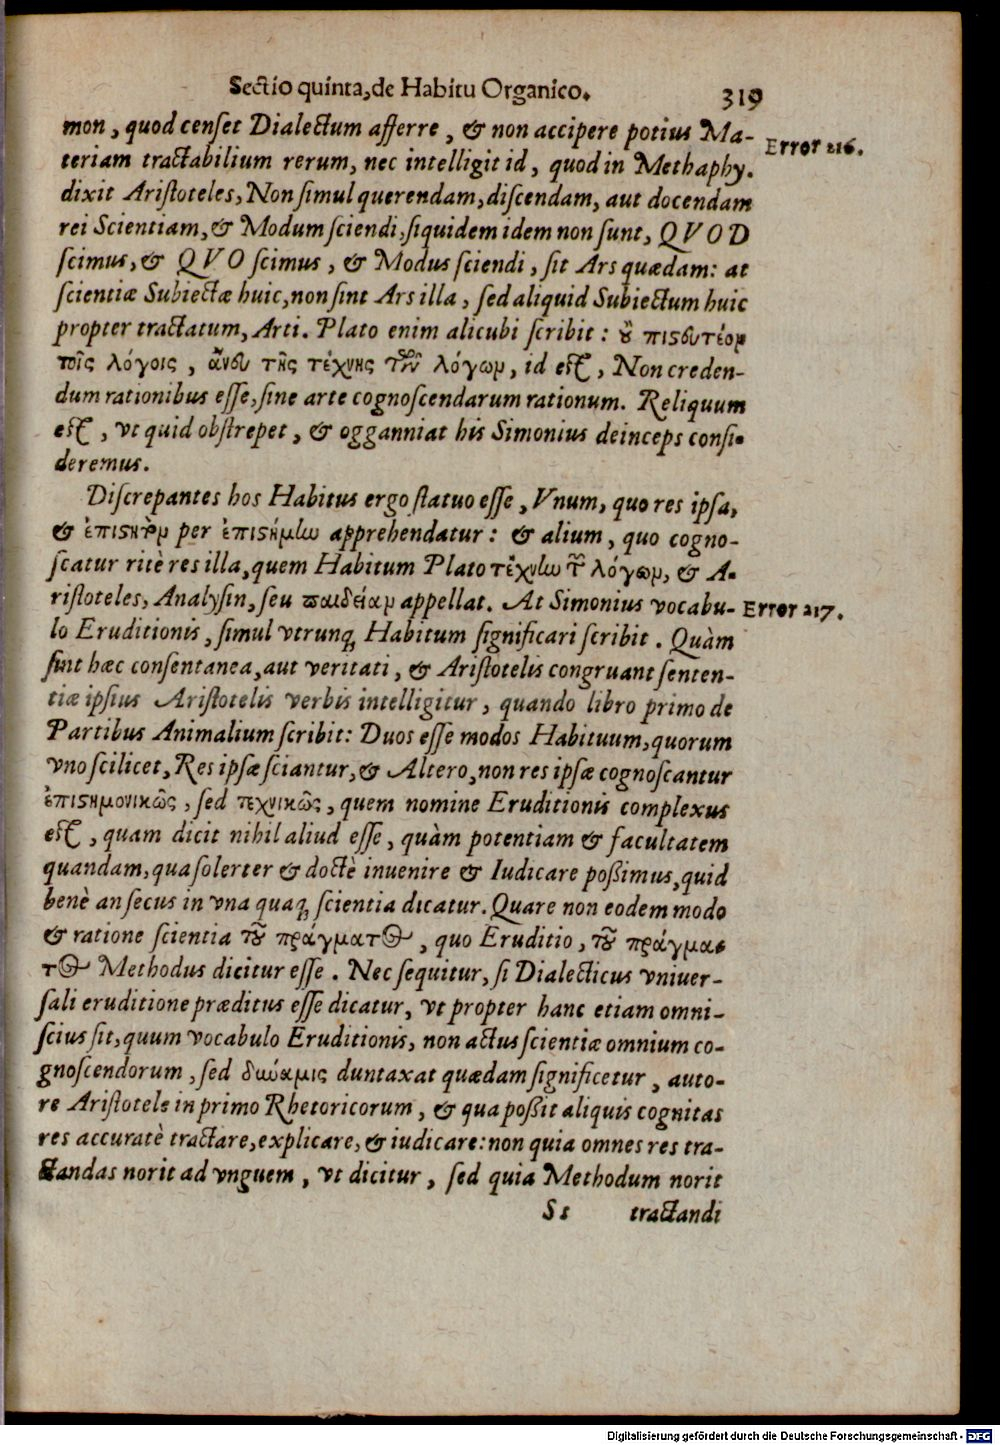 Sectio quinta, de Habitu Organico. 319
mon, quod censet Dialectum afferre, & non accipere potius Ma-
Error 216.
teriam tractabilium rerum, nec intelligit id, quod in Methaphy.
dixit Aristoteles, Non simul querendam, discendam, aut docendam
rei Scientiam, & Modum sciendi, siquidem idem non sunt, QVOD
scimus, & QVO scimus, & Modus sciendi, sit Ars quædam: at
scientiæ Subiectæ huic, non sint Ars illa, sed aliquid Subiectum huic
propter tractatum, Arti. Plato enim alicubi scribit: ȣ πιςευτέομ
τοῖς λόγοις, ἄνευ τῆς τέχνης τῶν λόγωμ, id est, Non creden-
dum rationibus esse, sine arte cognoscendarum rationum. Reliquum
est, vt quid obstrepet, & ogganniat his Simonius deinceps consi-
deremus.
Discrepantes hos Habitus ergo statuo esse, Vnum, quo res ipsa,
& ἐπιςητὸμ per ἐπιςήμlω apprehendatur: & alium, quo cogno-
scatur ritè res illa, quem Habitum Plato τέχνlω τῶν λόγωμ, & A-
ristoteles, Analysin, seu παιδείαμ appellat. At Simonius vocabu-
Error 217.
lo Eruditionis, simul vtrunq; Habitum significari scribit. Quàm
sint hæc consentanea, aut veritati, & Aristotelis congruant senten-
tiæ ipsius Aristotelis verbis intelligitur, quando libro primo de
Partibus Animalium scribit: Duos esse modos Habituum, quorum
vno scilicet, Res ipsæ sciantur, & Altero, non res ipsæ cognoscantur
ἐπιςημονικῶς, sed τεχνικῶς, quem nomine Eruditionis complexus
est, quam dicit nihil aliud esse, quàm potentiam & facultatem
quandam, qua solerter & doctè invenire & Iudicare poßimus, quid
benè an secus in vna quaq; scientia dicatur. Quare non eodem modo
& ratione scientia τȣ͂ πράγματ⊙, quo Eruditio, τȣ͂ πράγμα-
τ⊙ Methodus dicitur esse. Nec sequitur, si Dialecticus vniuer-
sali eruditione præditus esse dicatur, vt propter hanc etiam omni-
scius sit, quum vocabulo Eruditionis, non actus scientiæ omnium co-
gnoscendorum, sed δύναμις duntaxat quædam significetur, auto-
re Aristotele in primo Rhetoricorum, & qua poßit aliquis cognitas
res accuratè tractare, explicare, & iudicare: non quia omnes res tra-
ctandas norit ad vnguem, vt dicitur, sed quia Methodum norit
Ss tractandi
Digitalisierung gefördert durch die Deutsche Forschungsgemeinschaft - DFG